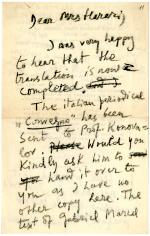 Dear Mrs Harari,
I am very happy
to hear that the
translation is now
completed
The italian periodical
"Convegno" has been
sent to Prof. Konova-
lov. Please Would you
Kindly ask him to
hand it over to
you as I have no
other copy here. The
text of Gabriel Marcel